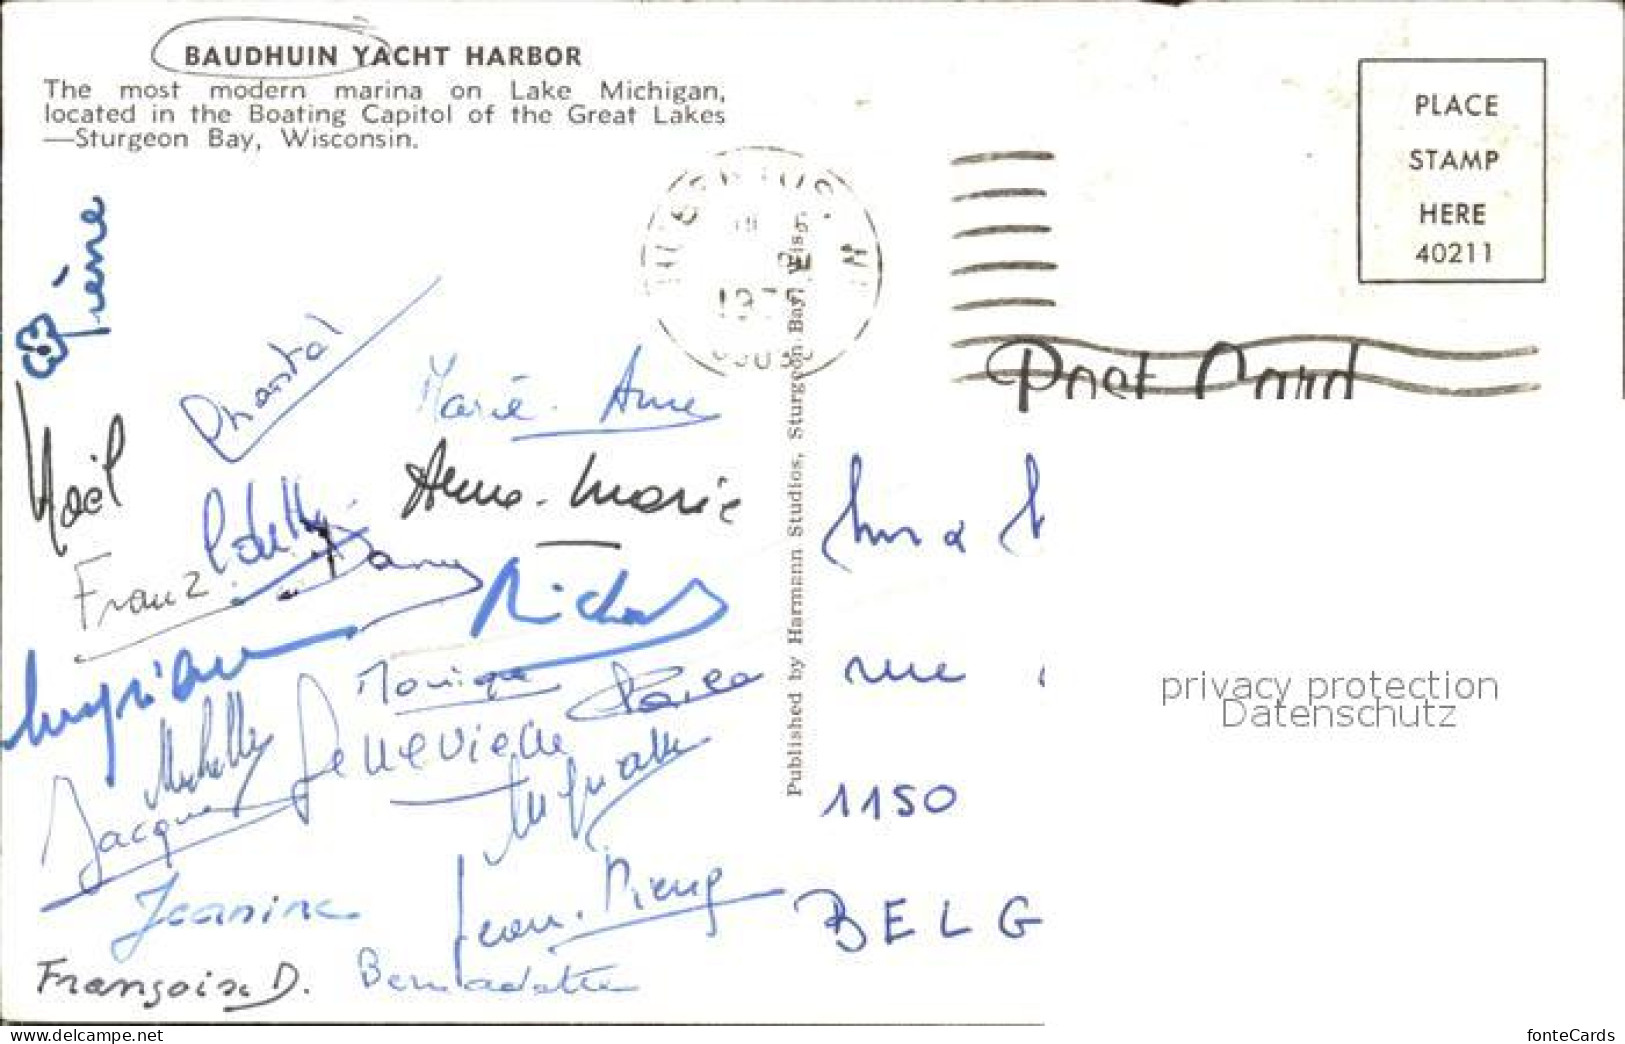 BAUDHUIN YACHT HARBOR
The most modern marina on Lake Michigan,
located in the Boating Capitol of the Great Lakes
—Sturgeon Bay, Wisconsin.
PLACE
STAMP
HERE
40211
Post Card
Published by Harmann Studios, Sturgeon Bay, Wis.
Pierre
Chantal
Marie-Anne
Noël
Anne-Marie
Franz
Dany
Richard
Myriam
Monique
Michelle
Geneviève
Jacques
Jeanine
Jean-Pierre
Françoise D.
Bernadette
rue
1150
BELG
privacy protection
Datenschutz
https://www.delcampe.net
fonteCards